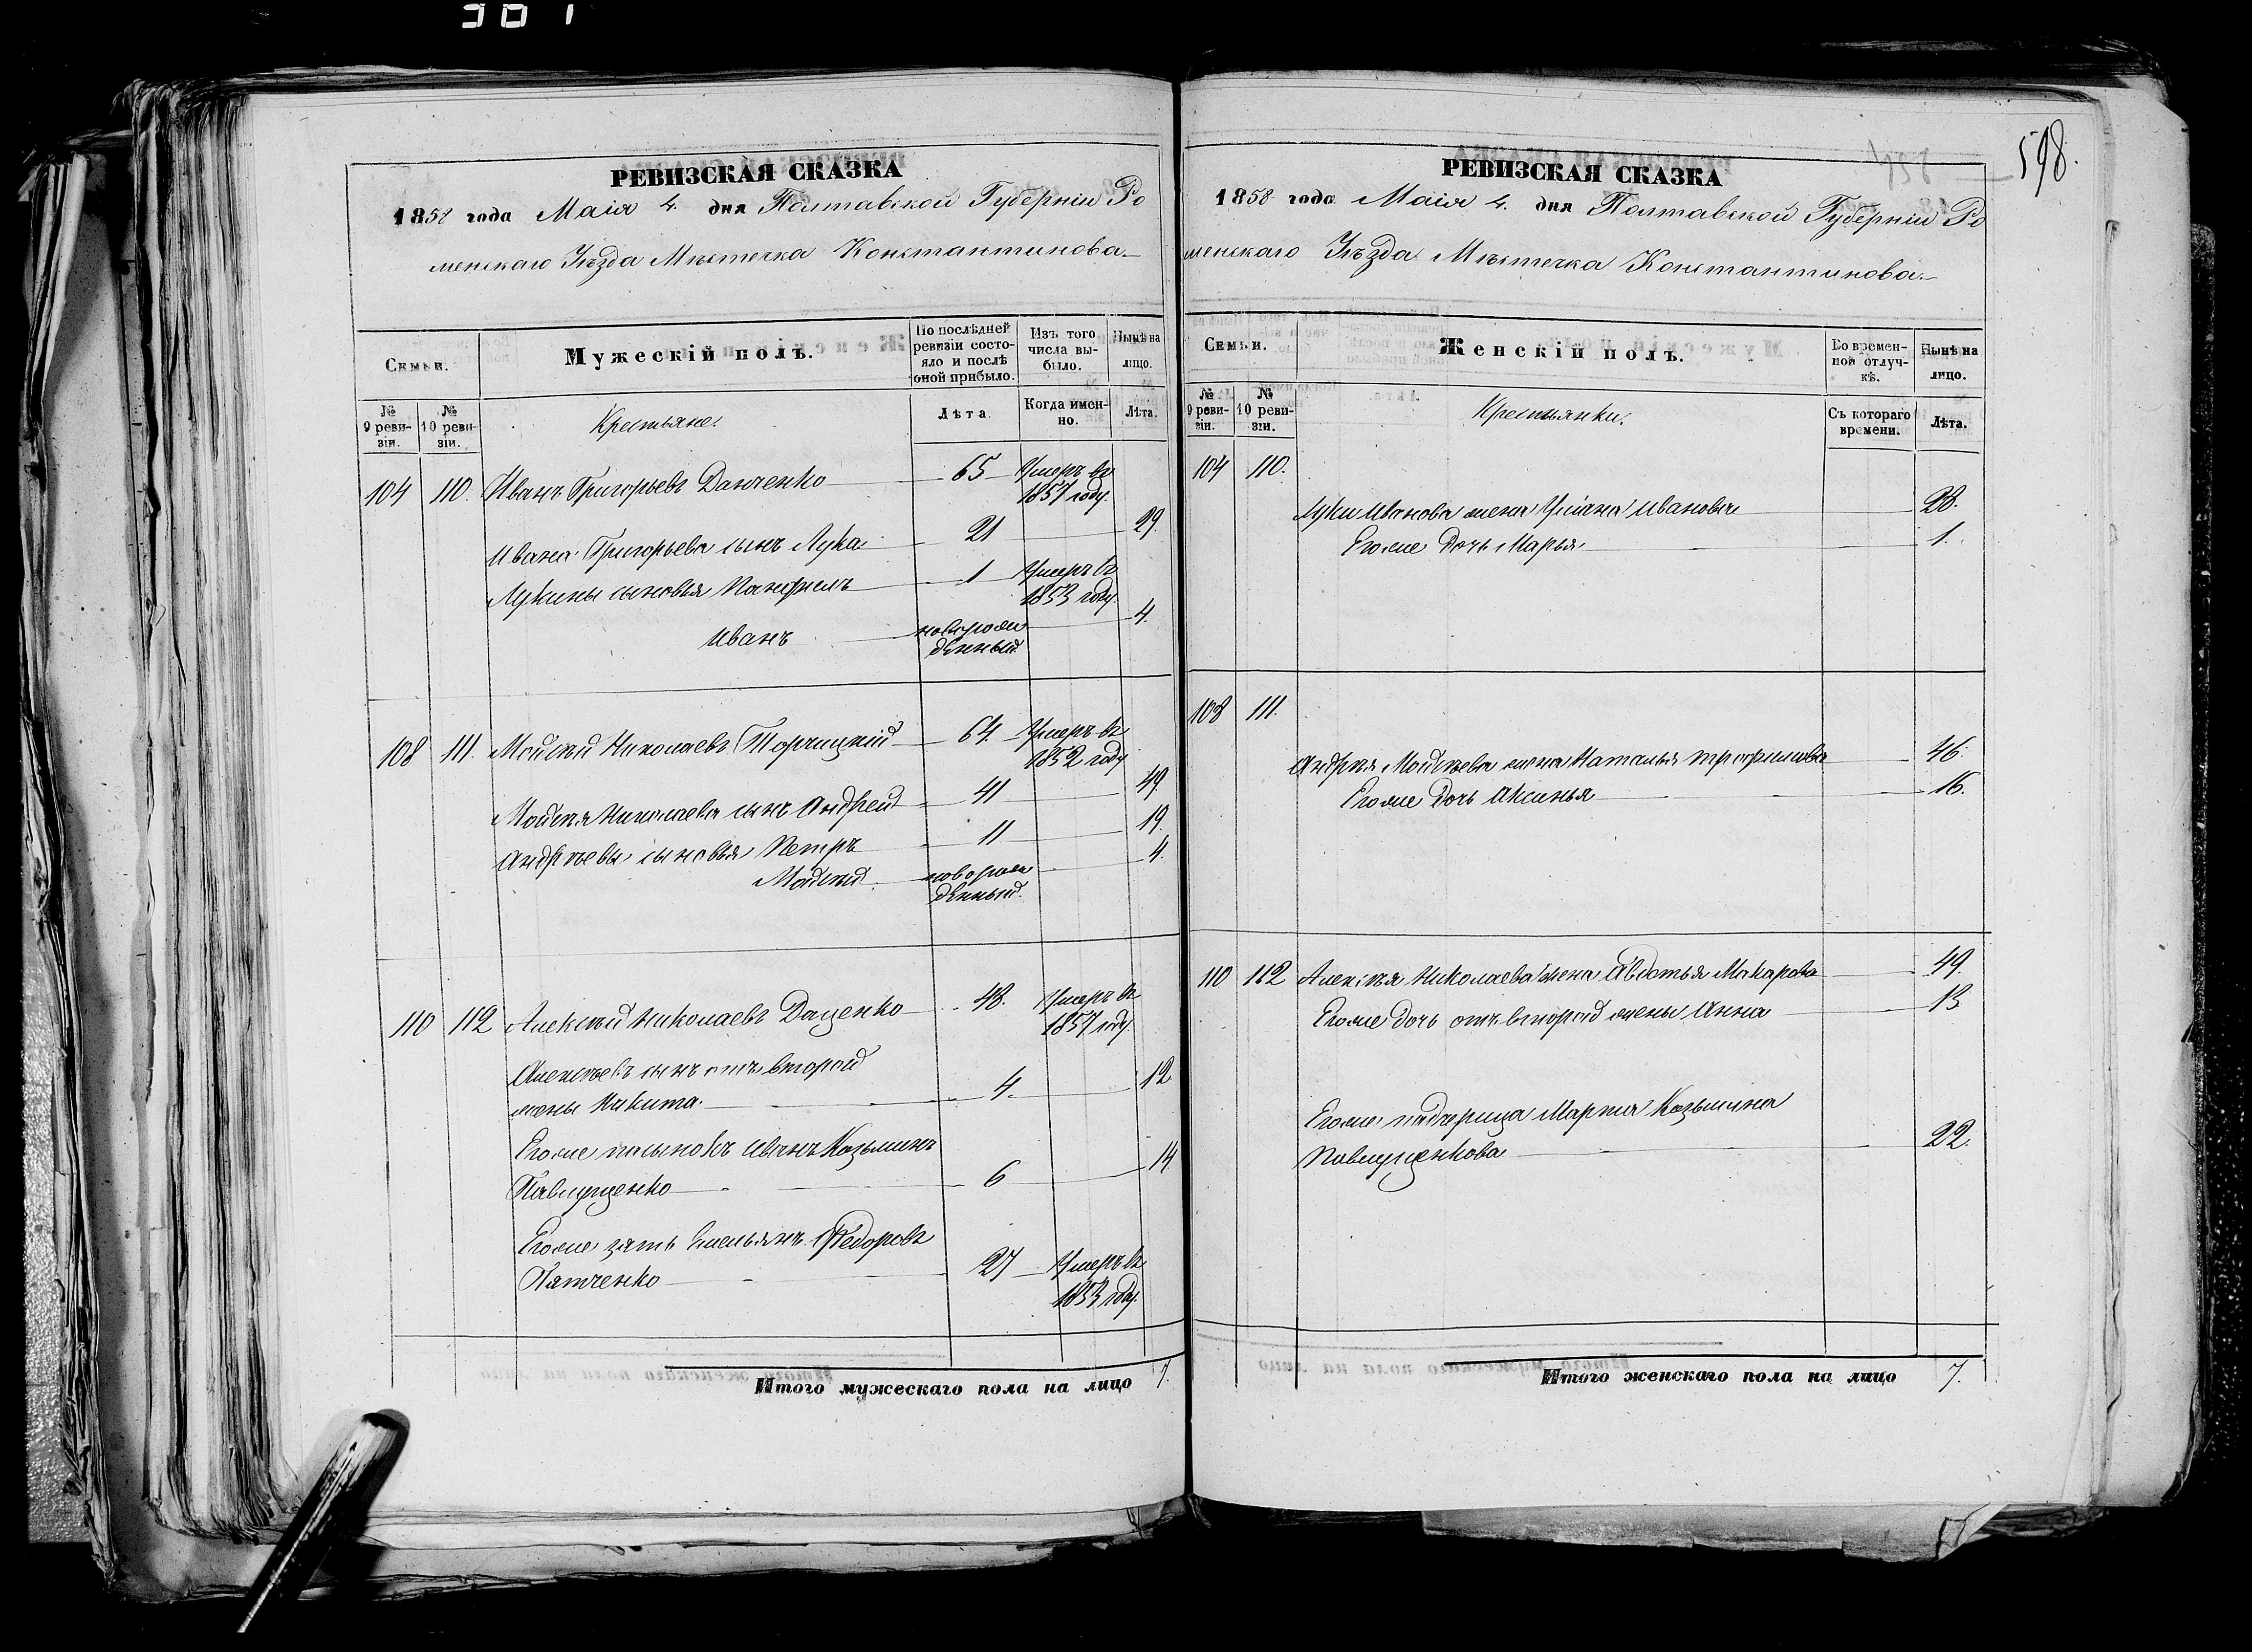 301
РЕВИЗСКАЯ СКАЗКА
1858 года Маія 4. дня Полтавской Губерніи Ро
менскаго Уѣзда Мѣстечка Константинова
Семьи.
Мужескій полъ.
По послѣдней ревизіи состояло и послѣ оной прибыло.
Изъ того числа выбыло.
Нынѣ на лицо.
№ 9 ревизіи.
№ 10 ревизіи.
Крестьяне.
Лѣта.
Когда именно.
Лѣта.
104 110. Иванъ Григорьевъ Данченко 65 Умеръ въ
1857 году.
Ивана Григорьева сынъ Лука 21 29.
Лукины сыновья Панфилъ 1 Умеръ въ
1853 году.
Иванъ новорож 4.
денный.
108 111. Моисѣй Николаевъ Торчицкій 64. Умеръ въ
1852 году
Моисѣя Николаева сынъ Андрей 41 49
Андрѣевы сыновья Петръ 11 19.
Моисѣй новорож 4.
денный.
110 112 Алексѣй Николаевъ Даценко 48. Умеръ въ
1857 году.
Алексѣевъ сынъ отъ второй
жены Никита. 4. 12
Егоже пасынокъ Иванъ Козьминъ
Павлущенко 6 14
Егоже зять Емельянъ Федоровъ
Пятченко 27 Умеръ въ
1853 году.
Итого мужескаго пола на лицо 7.
598.
РЕВИЗСКАЯ СКАЗКА
1858 года Маія 4. дня Полтавской Губерніи Ро
менскаго Уѣзда Мѣстечка Константинова
Семьи.
Женскій полъ.
Во временной отлучкѣ.
Нынѣ на лицо.
№ 9 ревизіи.
№ 10 ревизіи.
Крестьянки.
Съ котораго времени.
Лѣта.
104 110.
Луки Иванова жена Ульяна Иванова 28.
Егоже дочь Марья 1.
108 111.
Андрѣя Моисѣева жена Наталья Трофимова 46.
Егоже дочь Аксинья 16.
110 112 Алексѣя Николаева жена Авдотья Макарова 49.
Егоже дочь отъ второй жены Анна 13
Егоже падчерица Марфа Козьмина
Павлущенкова 22.
Итого женскаго пола на лицо 7.